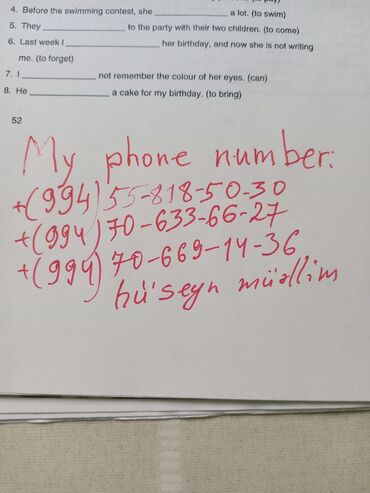 4. Before the swimming contest, she ____________ a lot. (to swim)
5. They ____________ to the party with their two children. (to come)
6. Last week I ____________ her birthday, and now she is not writing
me. (to forget)
7. I ____________ not remember the colour of her eyes. (can)
8. He ____________ a cake for my birthday. (to bring)
52
My phone number:
+(994) 55-818-50-30
+(994) 70-633-66-27
+(994) 70-669-14-36
hüseyn müəllim